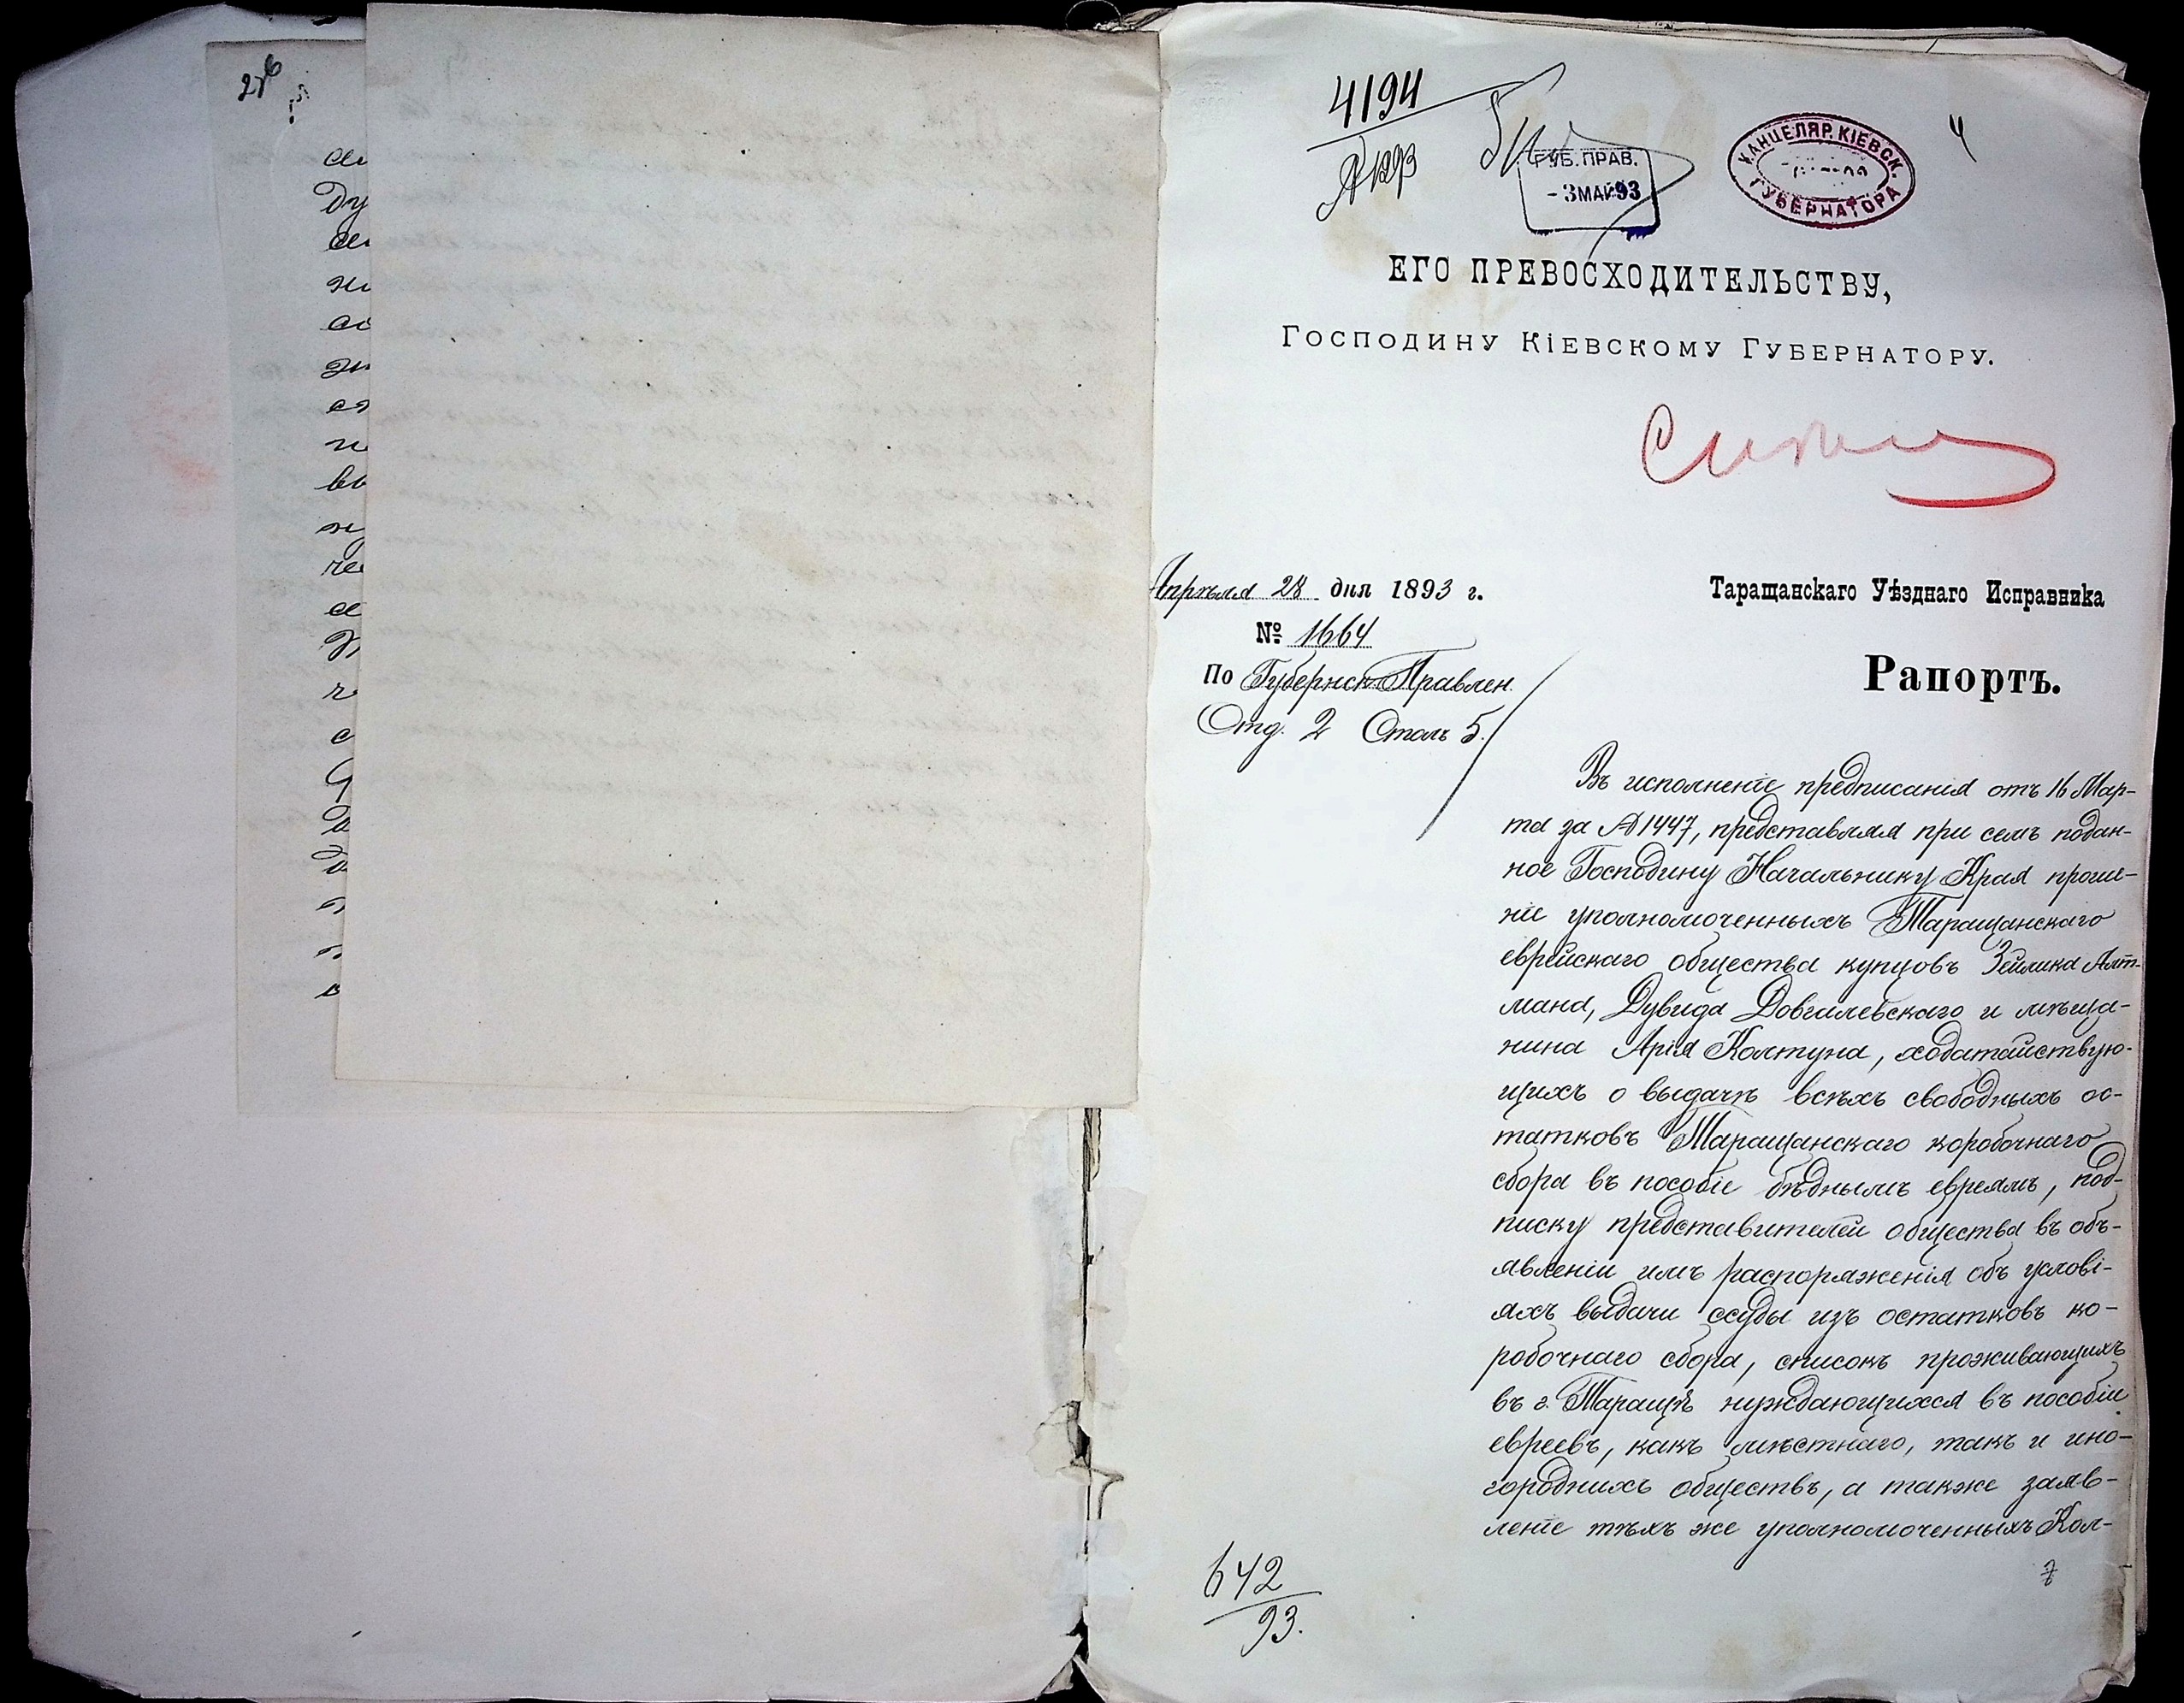 276
си
ду
си
жи
со
зи
сл
ни
вы
ну
че
а
ч
с
4194
1893
ГУБ. ПРАВ.
- 3 МАЯ 93
КАНЦЕЛЯР. КІЕВСК.
ГУБЕРНАТОРА
4
ЕГО ПРЕВОСХОДИТЕЛЬСТВУ,
Господину Кіевскому Губернатору.
Апрѣля 28 дня 1893 г.
№ 1664
По Губернск. Правлен.
Отд. 2 Столъ 5.
Таращанскаго Уѣзднаго Исправника
Рапортъ.
Въ исполненіе предписанія отъ 16 Мар-
та за № 1447, представляя при семъ подан-
ное Господину Начальнику Края проше-
ніе уполномоченныхъ Таращанскаго
еврейскаго общества купцовъ Зейлика Алт-
мана, Дувида Довгалевскаго и мѣща-
нина Арія Колтуна, ходатайствую-
щихъ о выдачѣ всѣхъ свободныхъ ос-
татковъ Таращанскаго коробочнаго
сбора въ пособіе бѣднымъ евреямъ, под-
писку представителей общества въ объ-
явленіи имъ распоряженія объ услові-
яхъ выдачи ссуды изъ остатковъ ко-
робочнаго сбора, списокъ проживающихъ
въ г. Таращѣ нуждающихся въ пособіи
евреевъ, какъ мѣстнаго, такъ и ино-
городнихъ обществъ, а также заяв-
леніе тѣхъ же уполномоченныхъ Кол-
642
93.